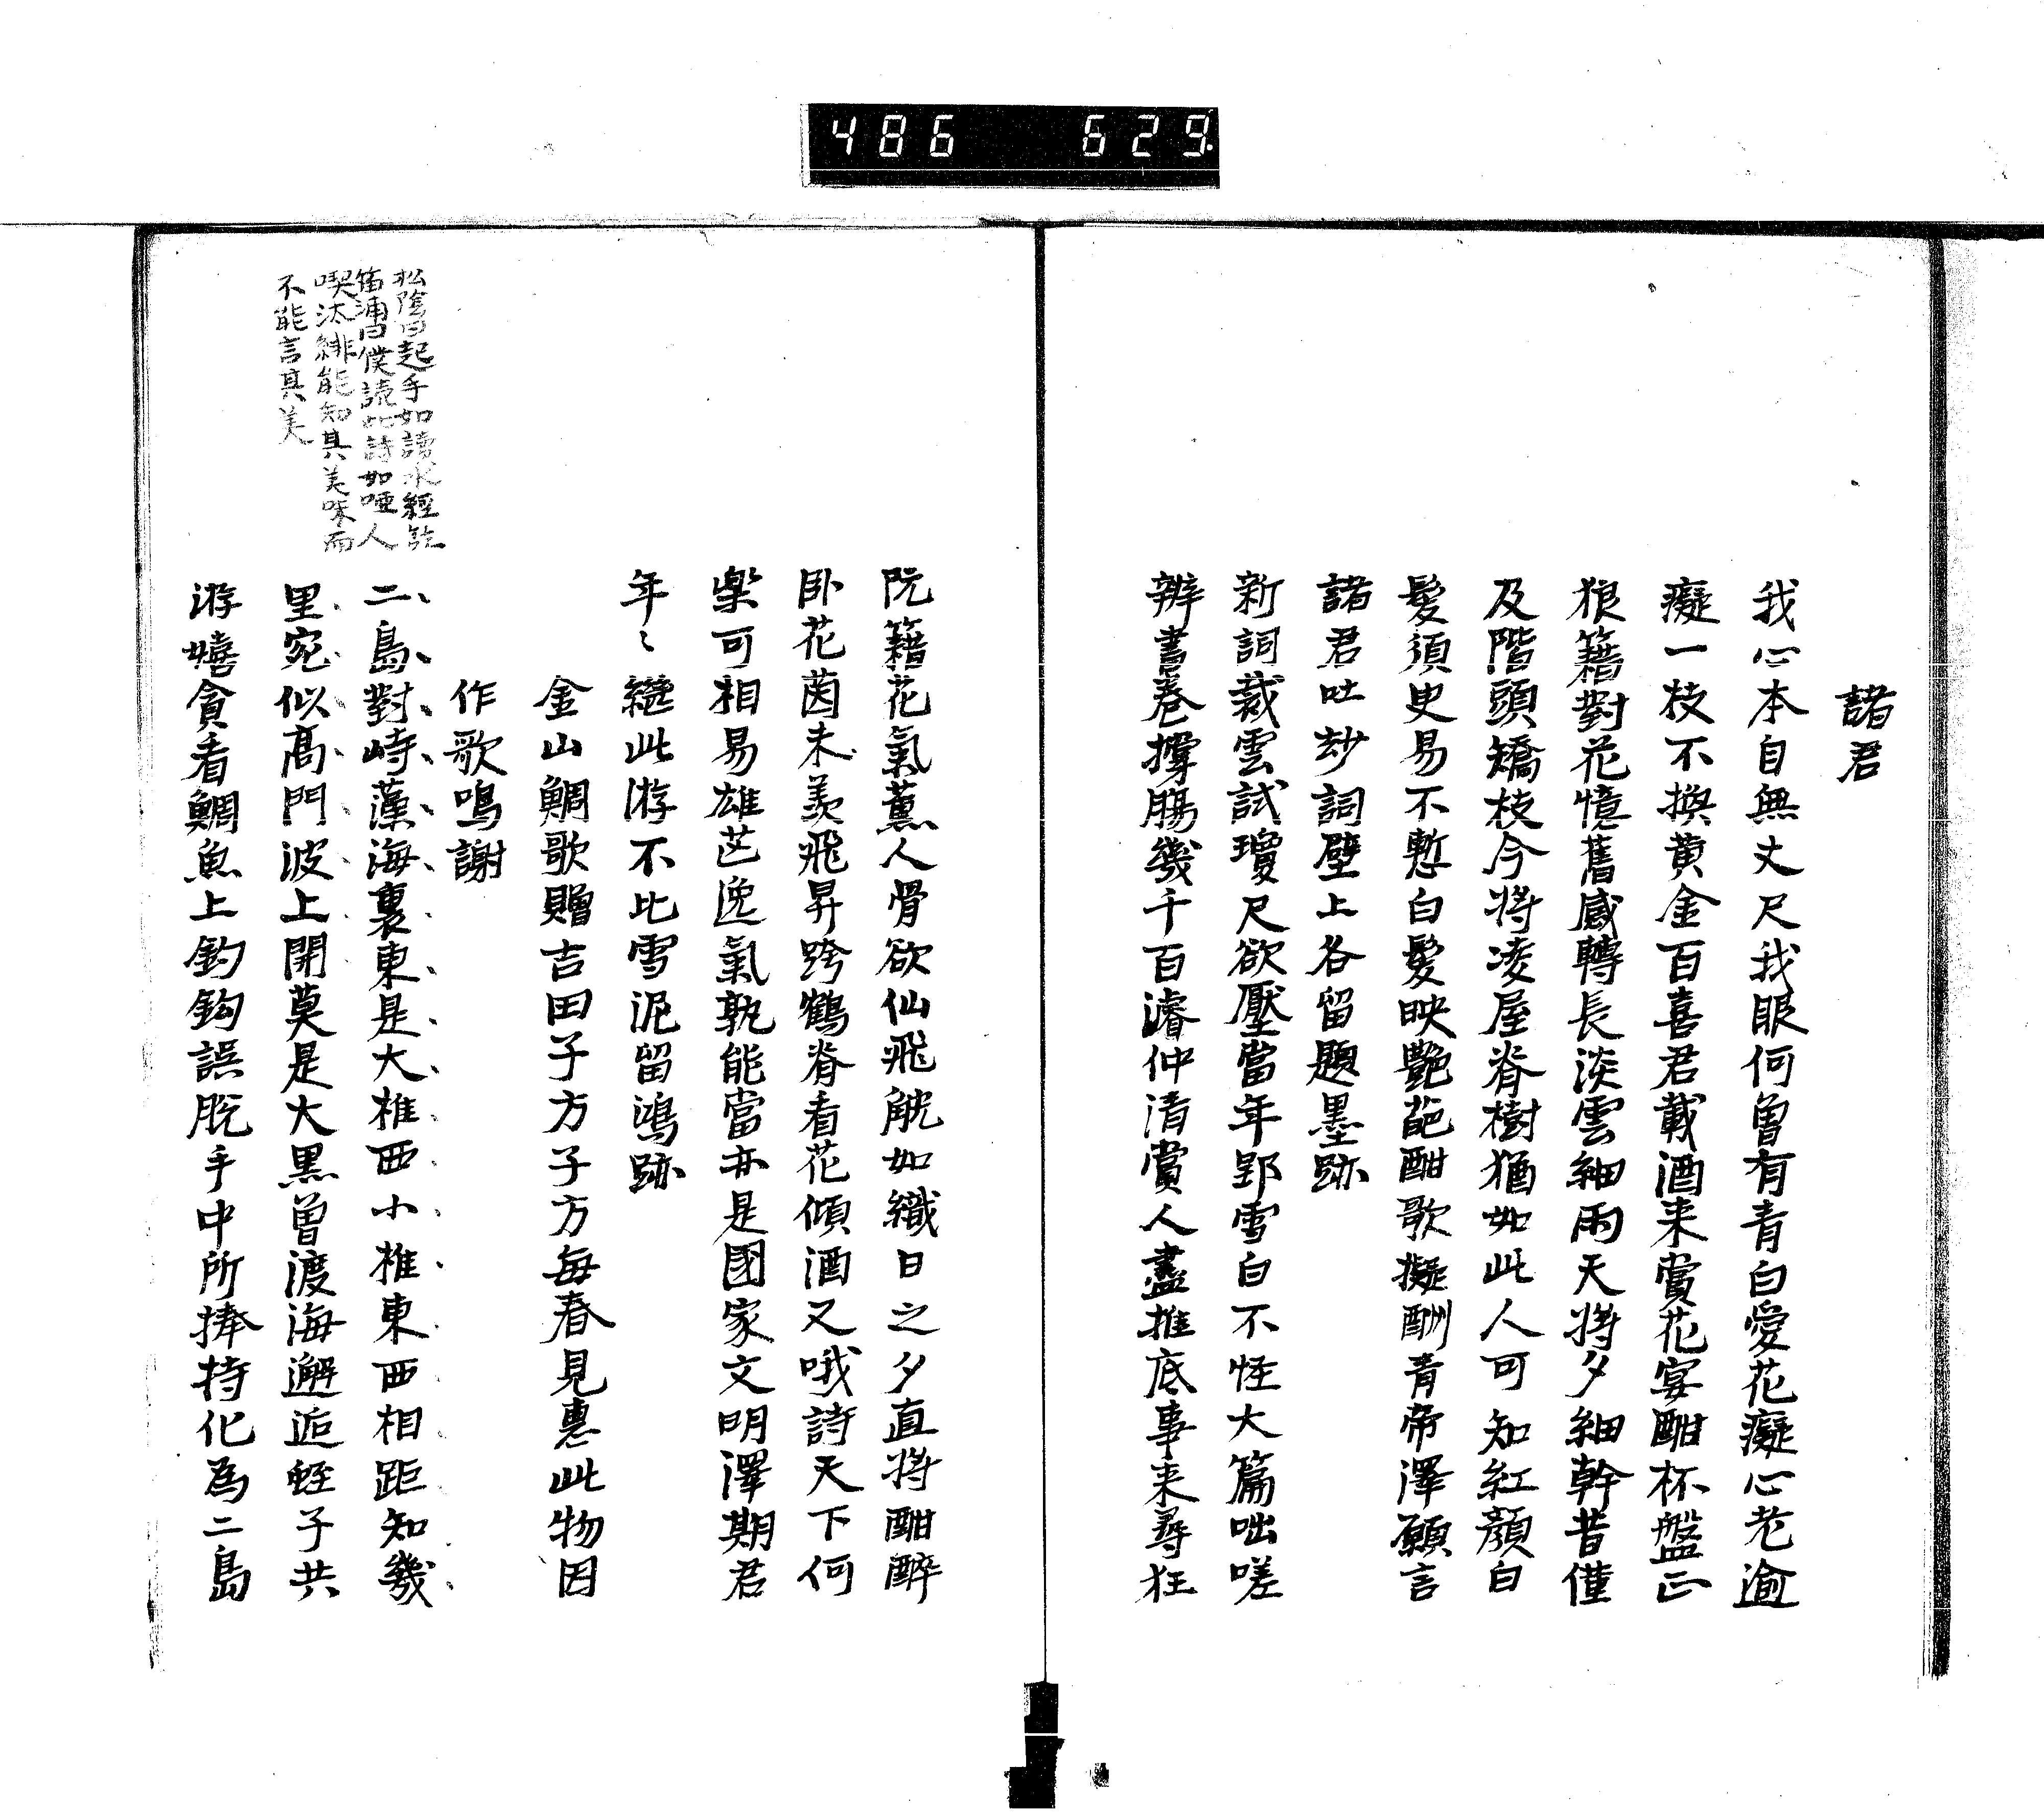 486 629
諸君
我心本自無丈尺我眼何曽有青白愛花癡心老逾
癡一枝不換黄金百喜君載酒来賞花宴酣杯盤正
狼籍對花憶舊感轉長淡雲細雨天将夕細幹昔僅
及階頭矯枝今将凌屋脊樹猶如此人可知紅顔白
髮須臾易不慙白髮映艶葩酣歌擬酬青帝澤願言
諸君吐妙詞壁上各留題墨跡
新詞裁雲試瓊尺欲壓當年郢雪白不怪大篇咄嗟
辨書巻撑腸幾千百濬仲清賞人盡推底事来尋狂
阮籍花氣薫人骨欲仙飛觥如織日之夕直将酣醉
卧花茵未羨飛昇跨鶴脊看花傾酒又哦詩天下何
楽可相易雄芒逸氣孰能當亦是國家文明澤期君
年〻継此游不比雪泥留鴻跡
金山鯛歌贈吉田子方子方毎春見恵此物因
作歌鳴謝
二島對峙藻海裏東是大椎西小椎東西相距知幾
里宛似髙門波上開莫是大黒曽渡海邂逅蛭子共
游嬉貪看鯛魚上釣鈎誤脱手中所捧持化為二島
松陰曰起手如讀水經
笛浦曰僕読此詩如唖人
喫 能知其美味而
不能言其美